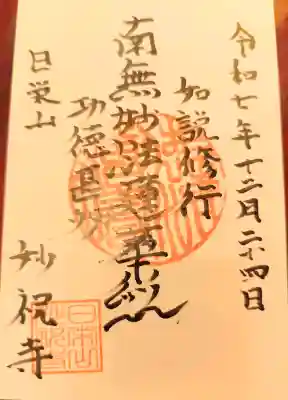 令和七年十二月二十四日
如説修行
南無妙法蓮華経
功徳甚多
日栄山
妙祝寺